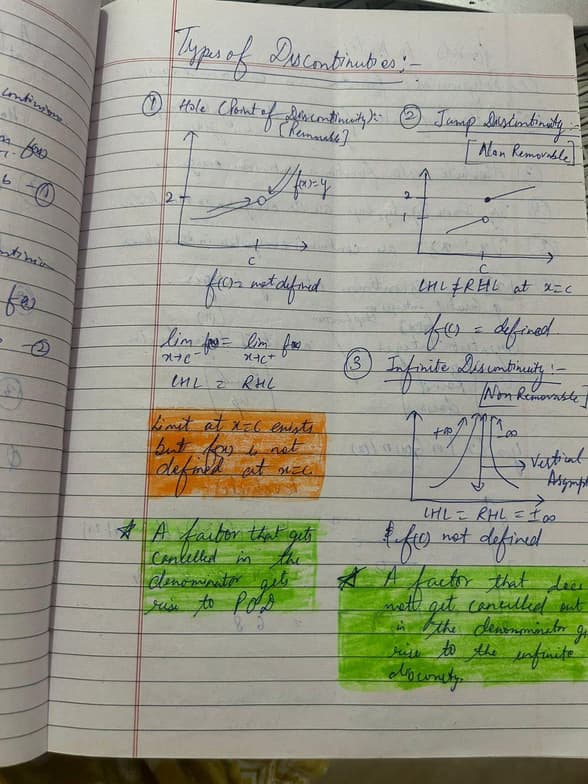 Types of Discontinuties :-
① Hole (Point of Discontinuity):-
[Removable]
f(x)=y
2
c
f(c)= not defined
lim f(x) = lim f(x)
x→c⁻ x→c⁺
LHL = RHL
Limit at x=c exists
but f(x) is not
defined at x=c.
☆ A factor that gets
cancelled in the
denominator gets
rise to POD
② Jump Discontinuity
[Non Removable]
2
1
c
LHL ≠ RHL at x=c
f(c) = defined
③ Infinite Discontinuity :-
[Non Removable]
+∞ -∞
→ Vertical
Asympt
LHL = RHL = ±∞
f(c) not defined
☆ A factor that does
not get cancelled out
in the denominator g
rise to the infinite
continuous
f(x)
6 - ①
- ②